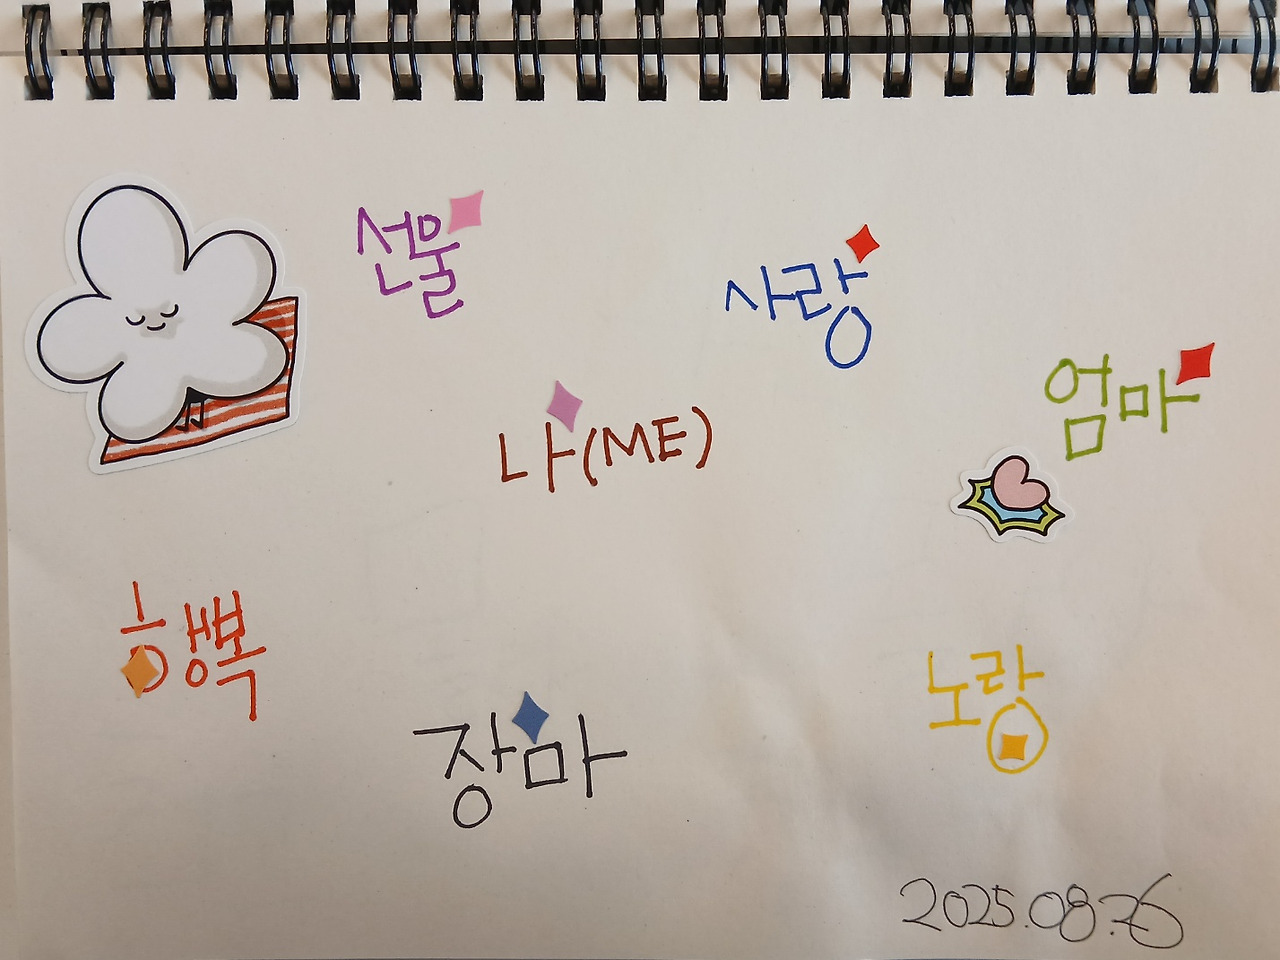 선물
사랑
엄마
나(ME)
행복
노랑
장마
2025.08.26